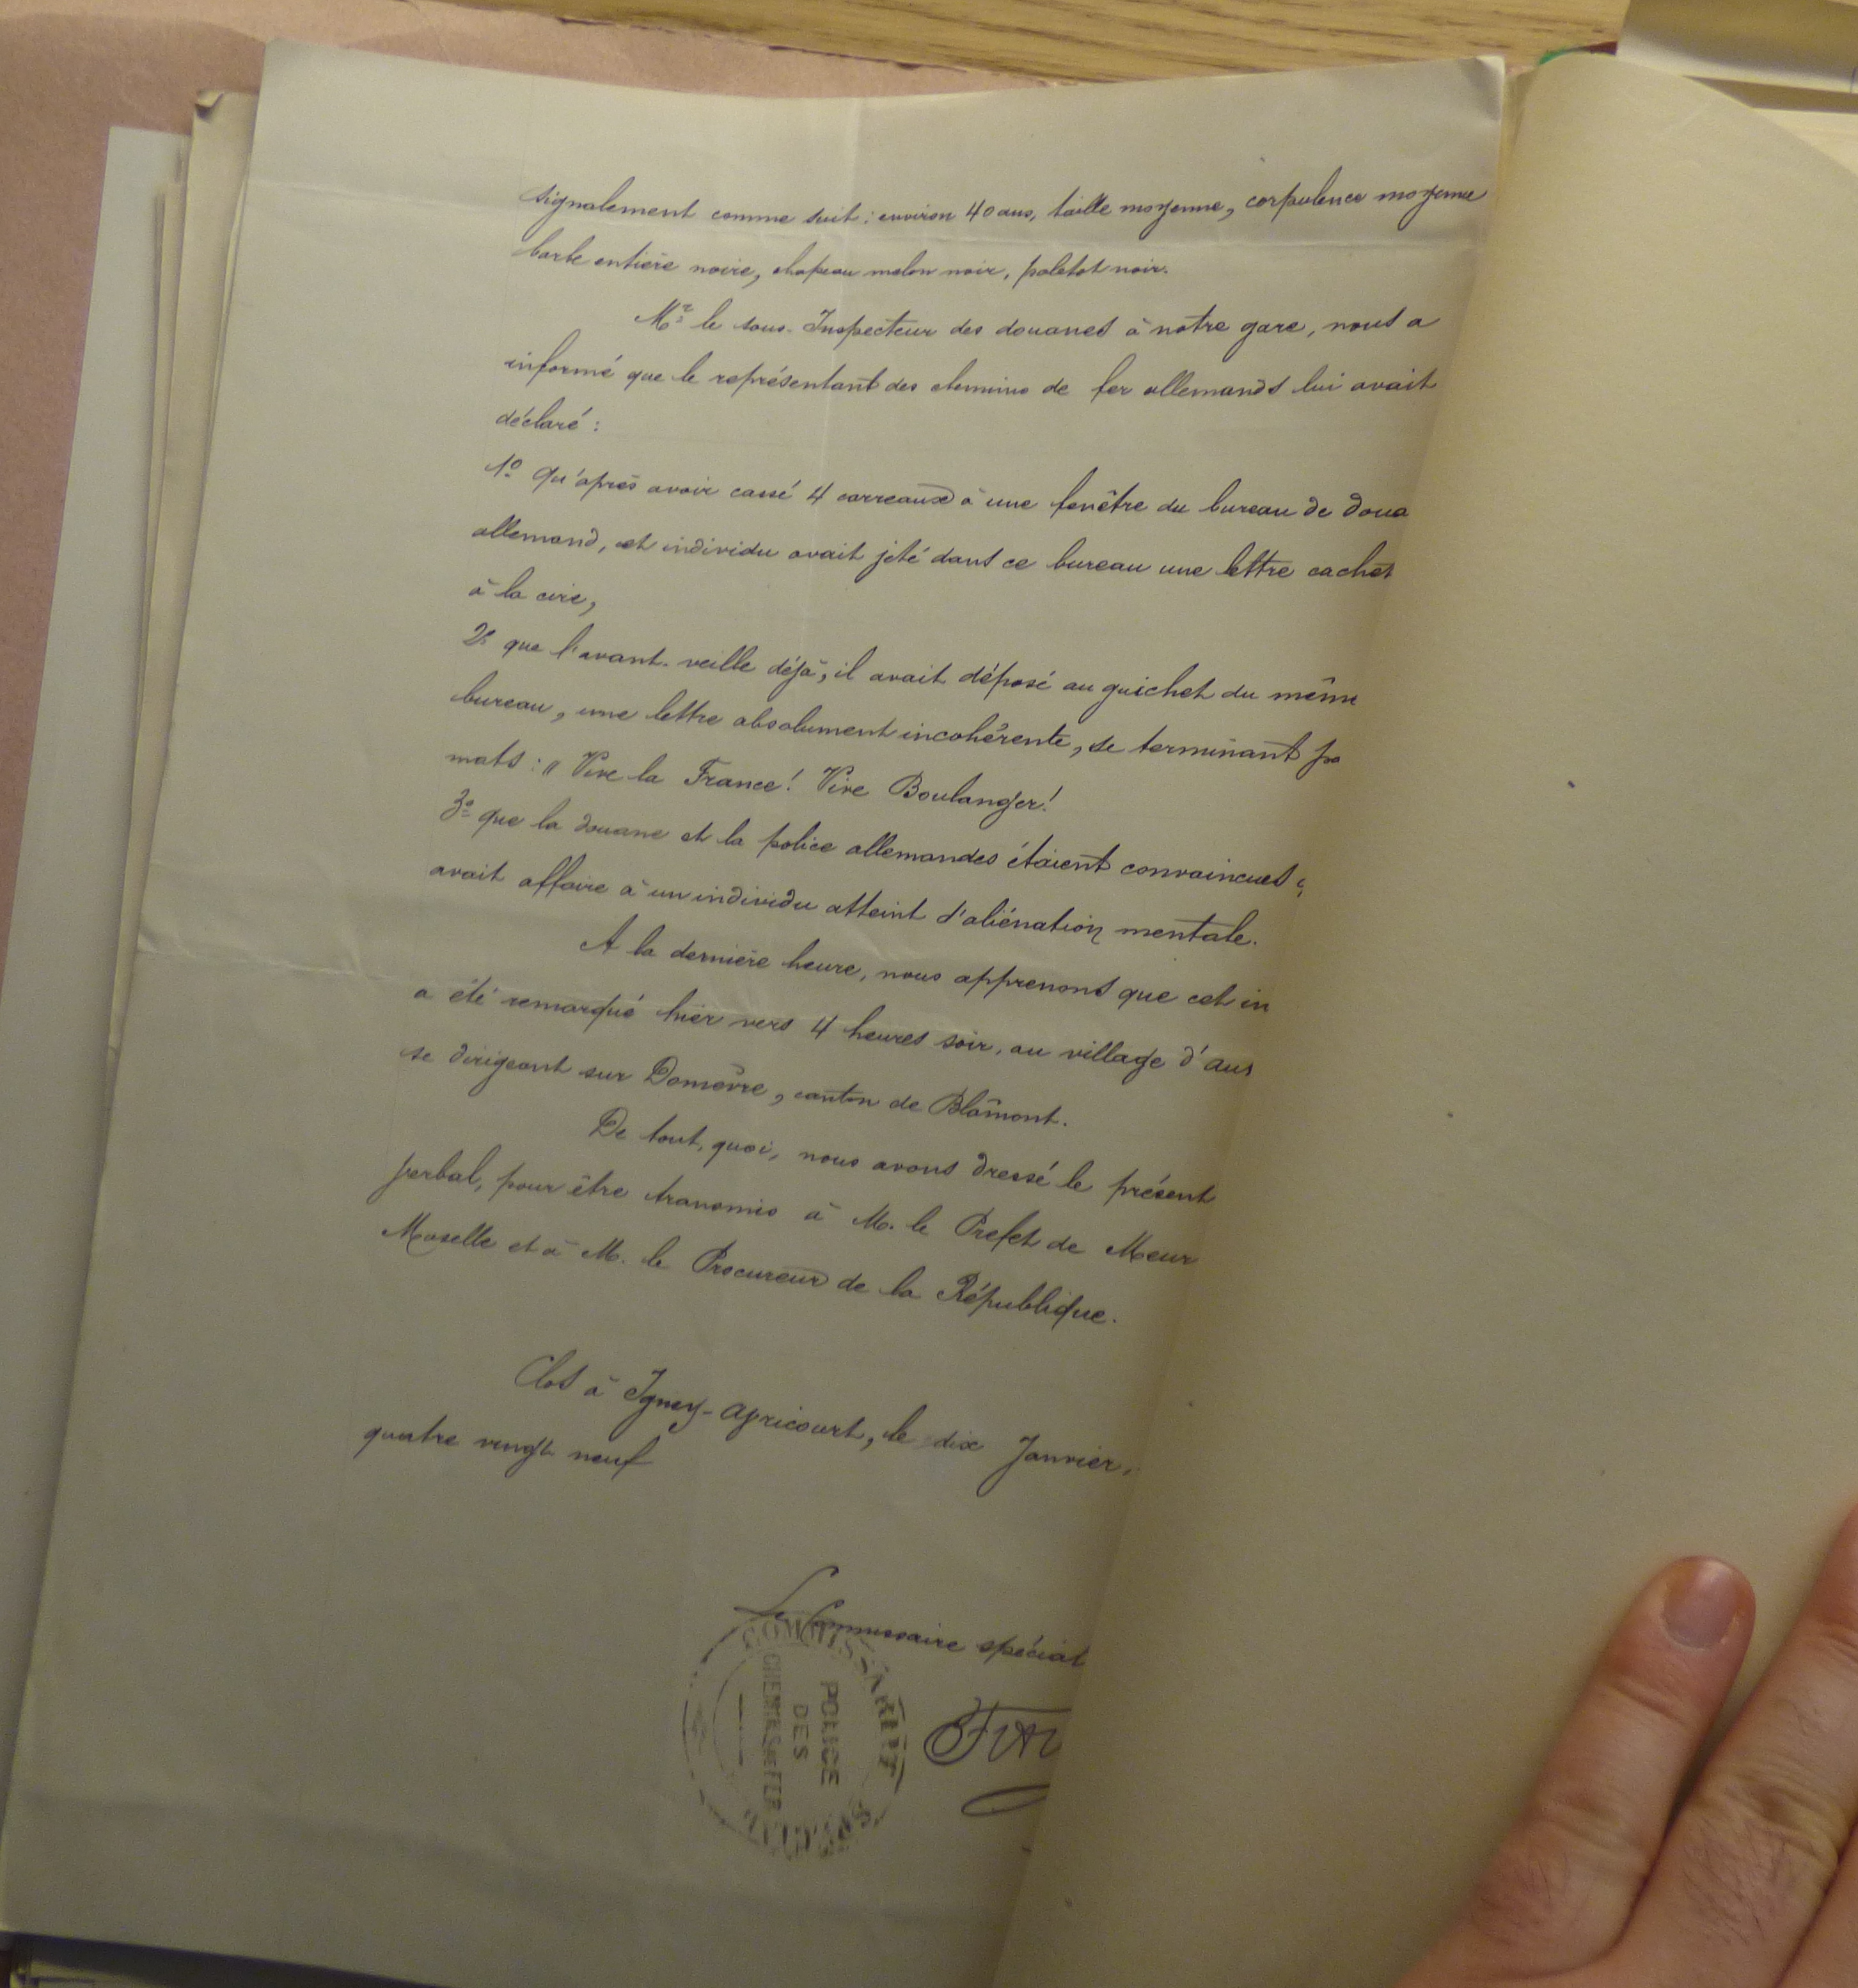 signalement comme suit : environ 40 ans, taille moyenne, corpulence moyenne
barbe entière noire, chapeau melon noir, paletot noir.
Mr le sous-Inspecteur des douanes à notre gare, nous a
informé que le représentant des chemins de fer allemands lui avait
déclaré :
1º qu'après avoir cassé 4 carreaux à une fenêtre du bureau de doua
allemand, cet individu avait jeté dans ce bureau une lettre cachet
à la cire,
2º que l'avant-veille déjà, il avait déposé au guichet du mêm
bureau, une lettre absolument incohérente, se terminant pa
mots : " Vive la France ! Vive Boulanger !
3º que la douane et la police allemandes étaient convaincues q
avait affaire à un individu atteint d'aliénation mentale.
A la dernière heure, nous apprenons que cet in
a été remarqué hier vers 4 heures soir, au village d'
se dirigeant sur Domèvre, canton de Blâmont.
De tout quoi, nous avons dressé le présent
verbal, pour être transmis à M. le Préfet de Meur
Moselle et à M. le Procureur de la République.
Clos à Igney-Avricourt, le dix Janvier,
quatre vingt neuf
Le Commissaire spécial
COMMISSARIAT SPÉCIAL
POLICE
DES
CHEMINS DE FER